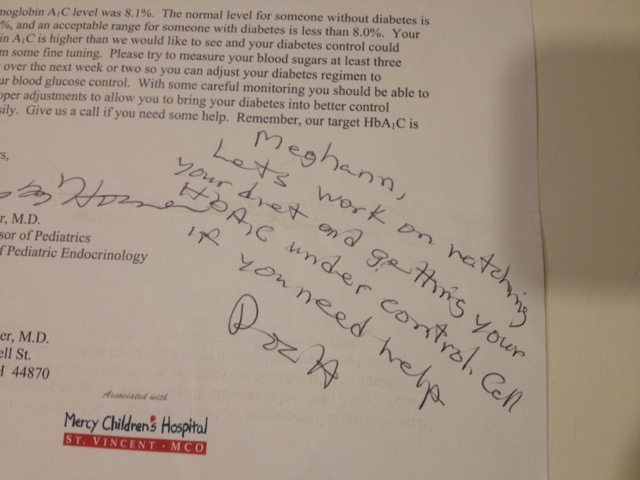 moglobin A₁C level was 8.1%.  The normal level for someone without diabetes is
%, and an acceptable range for someone with diabetes is less than 8.0%.  Your
in A₁C is higher than we would like to see and your diabetes control could
m some fine tuning.  Please try to measure your blood sugars at least three
over the next week or two so you can adjust your diabetes regimen to
ur blood glucose control.  With some careful monitoring you should be able to
oper adjustments to allow you to bring your diabetes into better control
sily.  Give us a call if you need some help.  Remember, our target HbA₁C is
s,
r, M.D.
sor of Pediatrics
f Pediatric Endocrinology
Meghann,
Let's work on watching
your diet and getting your
HbA1C under control. Call
if you need help
Doc H
er, M.D.
ell St.
H 44870
Associated with
Mercy Children's Hospital
ST. VINCENT · MCO